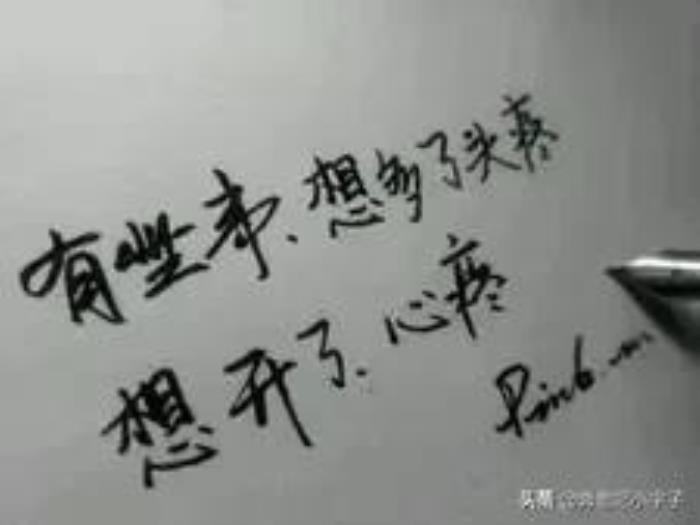 有些事、想多了头疼
想开了、心疼
头条